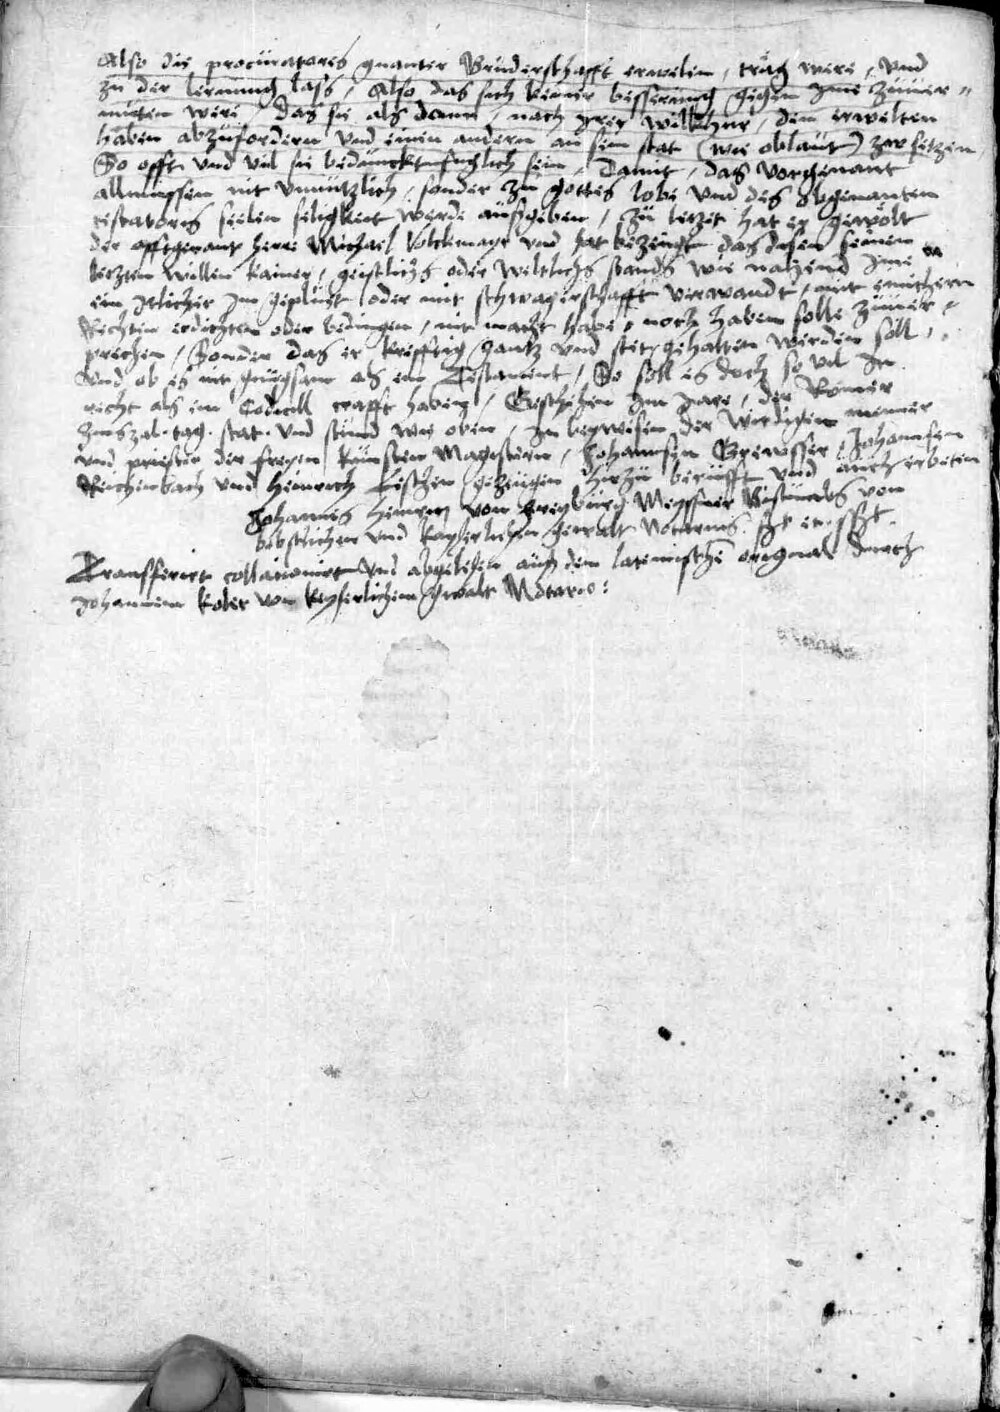 Also die procuratores gnanter Bruderschafft erwelten, träg were, und
zu der lernung lass, Also das sich keiner besserung gegen Jme zuuer=
muten were, Das sie als dann, nach jrer willkhur, den erwelten
haben abzufordern und einen andern an sein stat (wie oblaut) zw setzen
So offt und vil sie bedunckt fuglich sein, Damit, das vorgenant
allmussen nit unnützlich, sonder zu gottes lobe und des obgenanten
testatores seelen seligkeit werde aussgeben, Zu letzet hat er gewolt
der offtgenant herre Michael Volckmayr und hat bezeugt das disen seinen
letzten willen kainer, geistlichs oder weltlichs stands wie nahend Jme
ein Jtlicher Jm geplüet oder mit schwagerschafft verwandt, mit einichem
Rechten erdichten oder bedingen, nit macht habe, noch haben solle zuuer=
prechen, Sonder das er krefftig gantz und stet gehalten werden soll,
Und ob es nit gnugsam als ein Testament, So soll es doch so vil Jn
recht als ein Codicill crafft haben, Geschehen Jm Jare, der Römer
Zinszal. tag. stat. und stund wie oben, Jn beywesen der wirdigen menner
und priester der freyen künsten Magistern, Johannsen Johannsen
Reichenbach und Heinrich gezeugen hirzu berufft und auch erbeten
Johannes Heinrici von Meyssner Bistumbs von
bebstlichen und kayserlichen gewalt Notarius
Transferirt collationirt und abgelesen auss dem lateinischē original durch
Johannem koler von keyserlichem gwalt Notario: